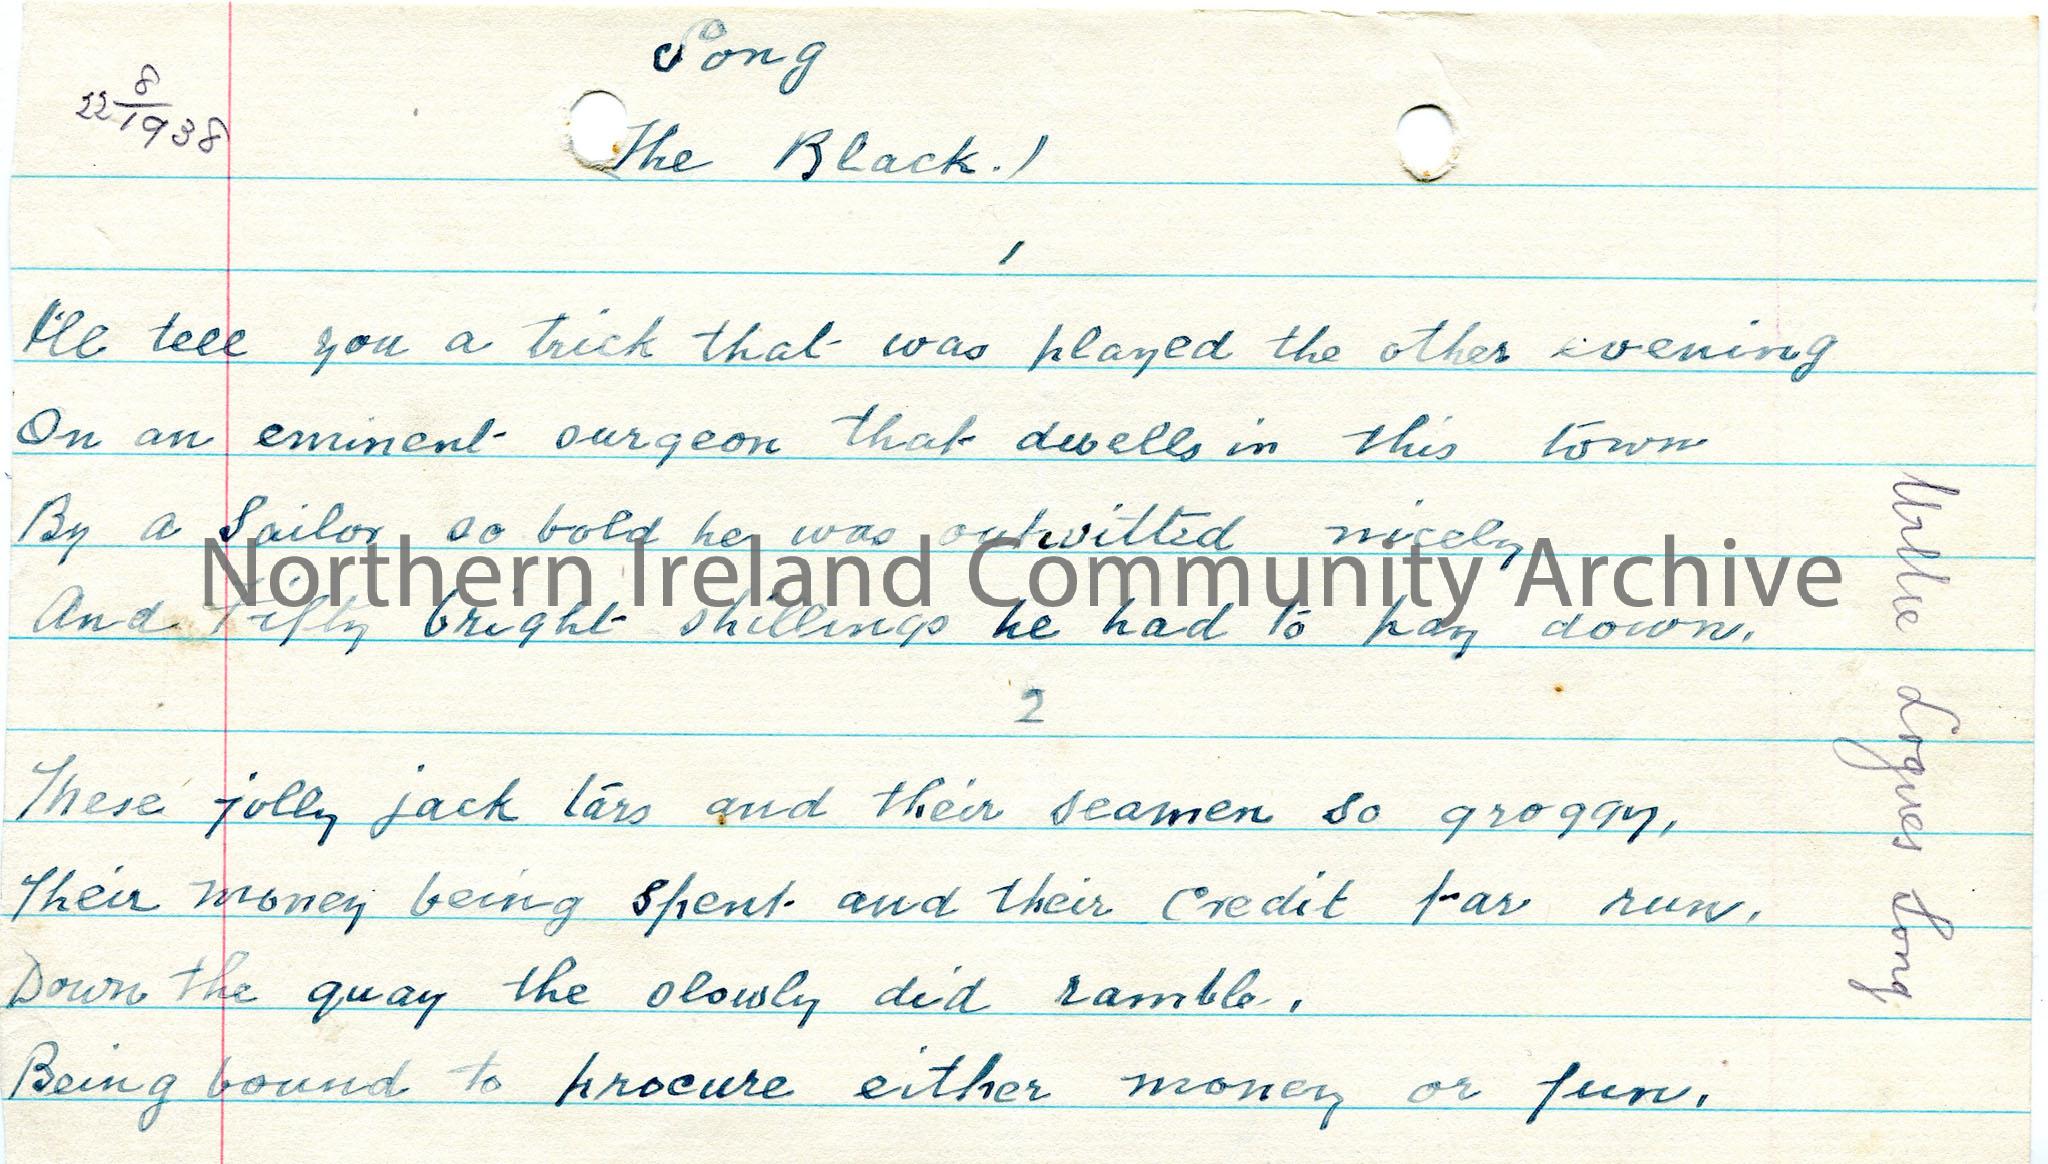 Song
22 8/1938
The Black.)
1
I'll tell you a trick that was played the other evening
On an eminent surgeon that dwells in this town
By a Sailor so bold he was outwitted nicely
And Fifty bright shillings he had to pay down.
2
These jolly jack tars and their seamen so groggy,
Their money being spent and their Credit far run.
Down the quay the slowly did ramble.
Being bound to procure either money or fun.
Logues Song
Northern Ireland Community Archive